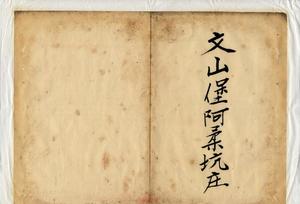 文山堡阿柔坑庄